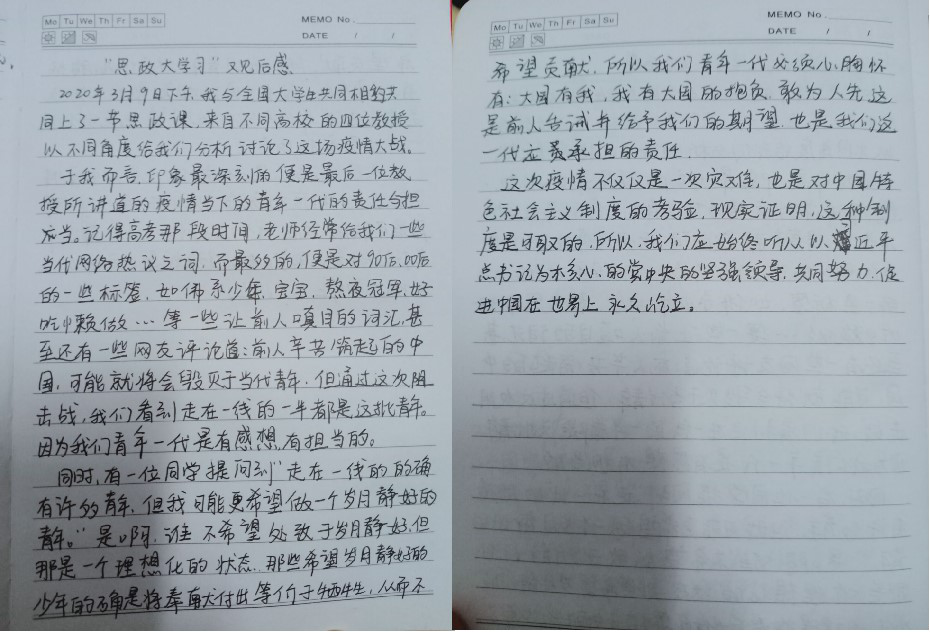 Mo Tu We Th Fr Sa Su
MEMO No.
DATE / /
"思政大学习"观后感
2020年3月9日下午，我与全国大学生共同相约共
同上了一节思政课，来自不同高校的四位教授
以不同角度给我们分析讨论了这场疫情大战。
于我而言，印象最深刻的便是最后一位教
授所讲道的疫情当下的青年一代的责任与担
应当。记得高考那段时间，老师经常给我们一些
当代网络热议之词，而最多的，便是对90后、00后
的一些标签，如佛系少年，宝宝，熬夜冠军，好
吃懒做…等一些让前人嗔目的词汇，甚
至还有一些网友评论道：前人辛苦筑起的中
国，可能就将会毁灭于当代青年，但通过这次阻
击战，我们看到走在一线的一半都是这批青年。
因为我们青年一代是有感想，有担当的。
同时，有一位同学提问到"走在一线的的确
有许多青年，但我可能更希望做一个岁月静好的
青年。"是啊，谁不希望处致于岁月静好，但
那是一个理想化的状态，那些希望岁月静好的
少年的确是将奉献付出等价于牺牲，从而不
Mo Tu We Th Fr Sa Su
MEMO No.
DATE / /
希望贡献，所以我们青年一代必须心胸怀
有：大国有我，我有大国的抱负，敢为人先，这
是前人告诫并给予我们的期望，也是我们这
一代应要承担的责任。
这次疫情不仅仅是一次灾难，也是对中国特
色社会主义制度的考验，现实证明，这种制
度是可取的，所以，我们应始终听从以习近平
总书记为核心的党中央的坚强领导，共同努力，促
进中国在世界上永久屹立。